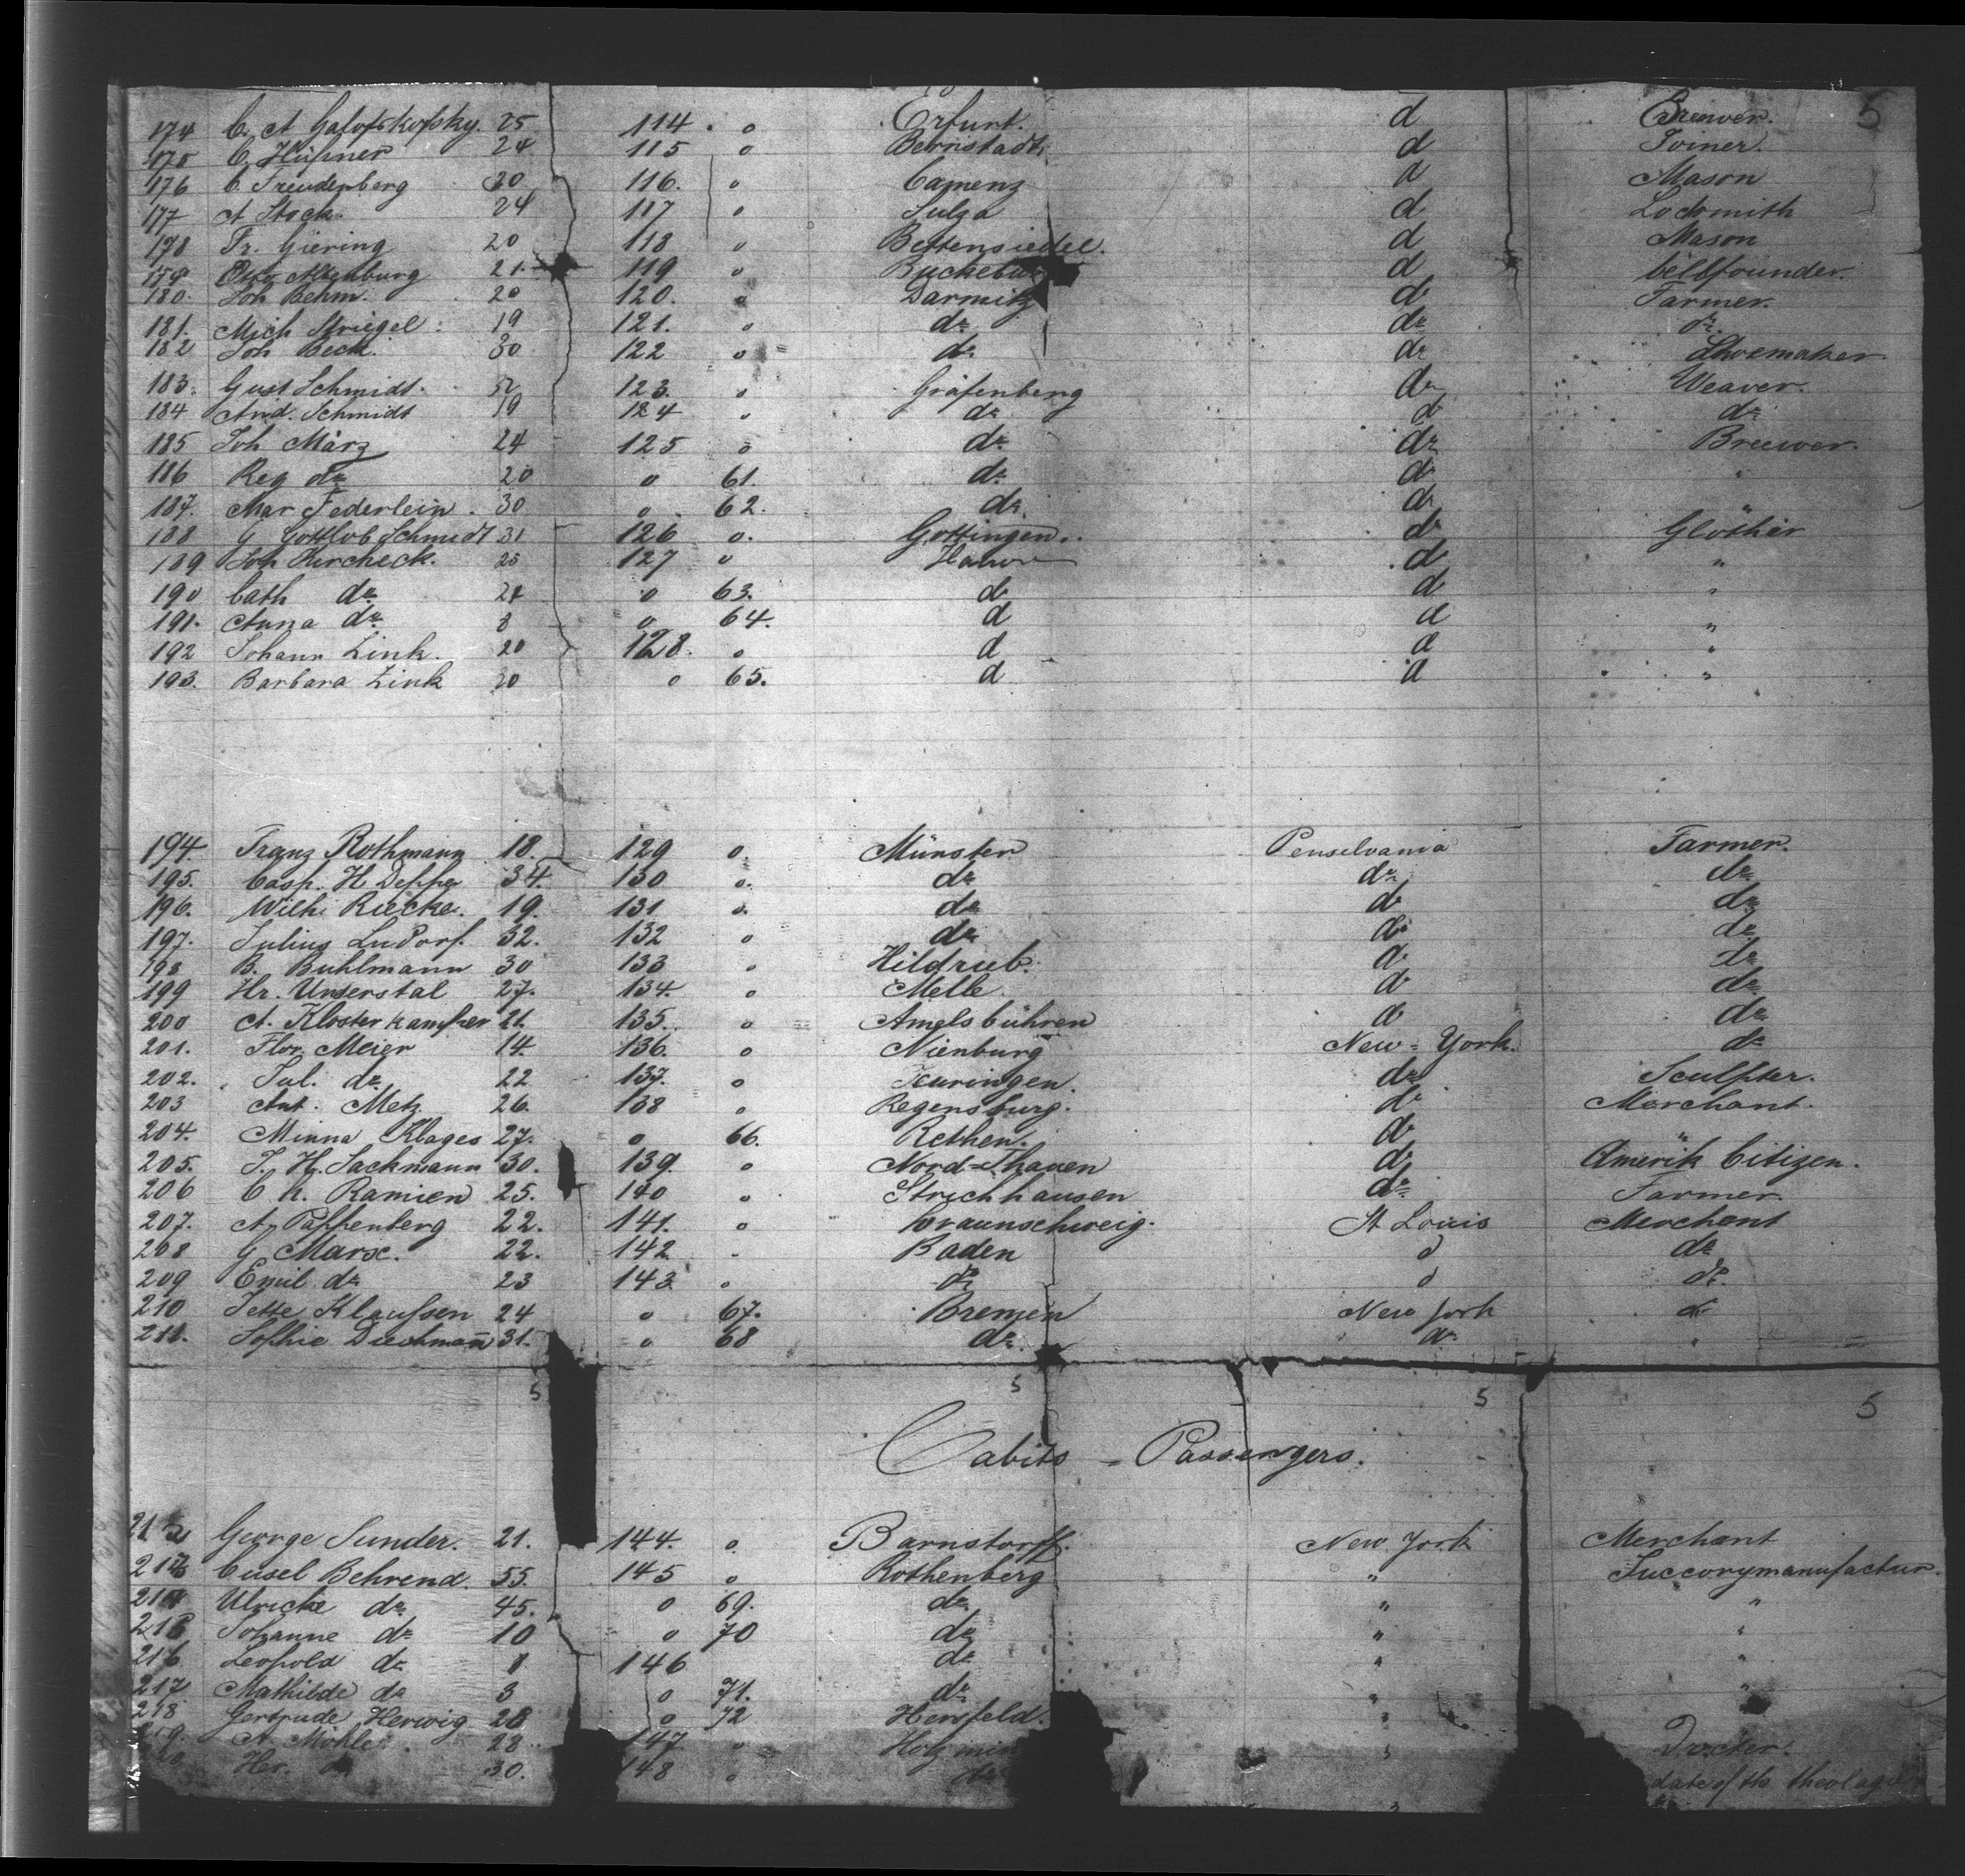 5
174 C. A Galofskofsky. 25 114. o Erfurt. d Breuver.
175 C. Hüfner 24 115 o Bernstadt. d Joiner.
176 C. Freudenberg 20 116. o Camenz d Mason
177 A Stock. 24 117 o Sulza d Locksmith
178 Fr. Giering 20 118 o Bettensiedel. d Mason
179 Altenburg 21. 119 o d bellfounder.
180. Joh Behm. 20 120. o Darmitz d Farmer.
181. Mich Striegel. 19 121. o do do do
182 Joh Beck. 30 122 o do do Shoemaker.
183. Gust Schmidt. 123. o Gräfenberg do Weaver.
184 And. Schmidt 19 124 o do d do
185 Joh März 24 125 o do do Breuver.
186 Reg do 20 o 61. do do "
187. Mar Federlein. 30 o 62. do. d "
188 G Gottlob Schmidt 31 126 o. Gottingen. d Glothier
189 Joh Kircheck. 25 127 o d "
190 Cath do 24 o 63. d d "
191. Anna do 8 o 64. d d "
192 Johann Zink. 20 128. o d d "
193. Barbara Zink 20 o 65. d d "
194. Franz Rothmann 18. 129 o. Münster Penselvania Farmer.
195. Casp. H Deppe 34. 130 o. do do do
196. Wilh. Riecke. 19. 131 o. do d do
197. Julius Ludorf. 32. 132 o do d do
198 B. Buhlmann 30 133 o Hildrub. d do
199 Hr. Understal 27. 134. o Melle. d do
200 A. Klosterkamper 21. 135. o Amelsbühren d do
201. Flor. Meier 14. 136. o Nienburg New-York. do
202. Jul. do 22 137. o Teuringen. do Sculpter.
203 Ant. Metz 26. 138 o Regensburg. d Merchant.
204. Minna Klages 27. o 66. Rethen. d "
205. J. H. Sackmann 30. 139. o d Amerik Citizen.
206 C h. Ramien 25. 140 o Strichhausen do Farmer.
207. A. Pappenberg 22. 141. o Braunschweig. St Louis Merchant
208 G Marx. 22. 142 - Baden d do
209 Emil do 23 143. o do d do
210 Jette Klaussen 24 o 67. Bremen New York d
211. Sophie Dieckmann 31. o 68 do. do "
5 5 5 5
Cabits - Passengers.
212 George Sunder. 21. 144. o. Barnstorff. New York Merchant
213 Cusel Behrend. 55. 145 o Rothenberg " Succorymanufactur.
214 Ulricke do. 45. o 69. do " "
215 Johanne do 10 o 70 do " "
216 Leopold do 146 do " "
217 Mathilde do 3 o 71. do " "
218 Gertrude Herwig 28 o 72 Hersfeld. "
219. A. Möhle 28. 147 o Holzmin " Docter.
Her. 30. 148 o do date of the theologie